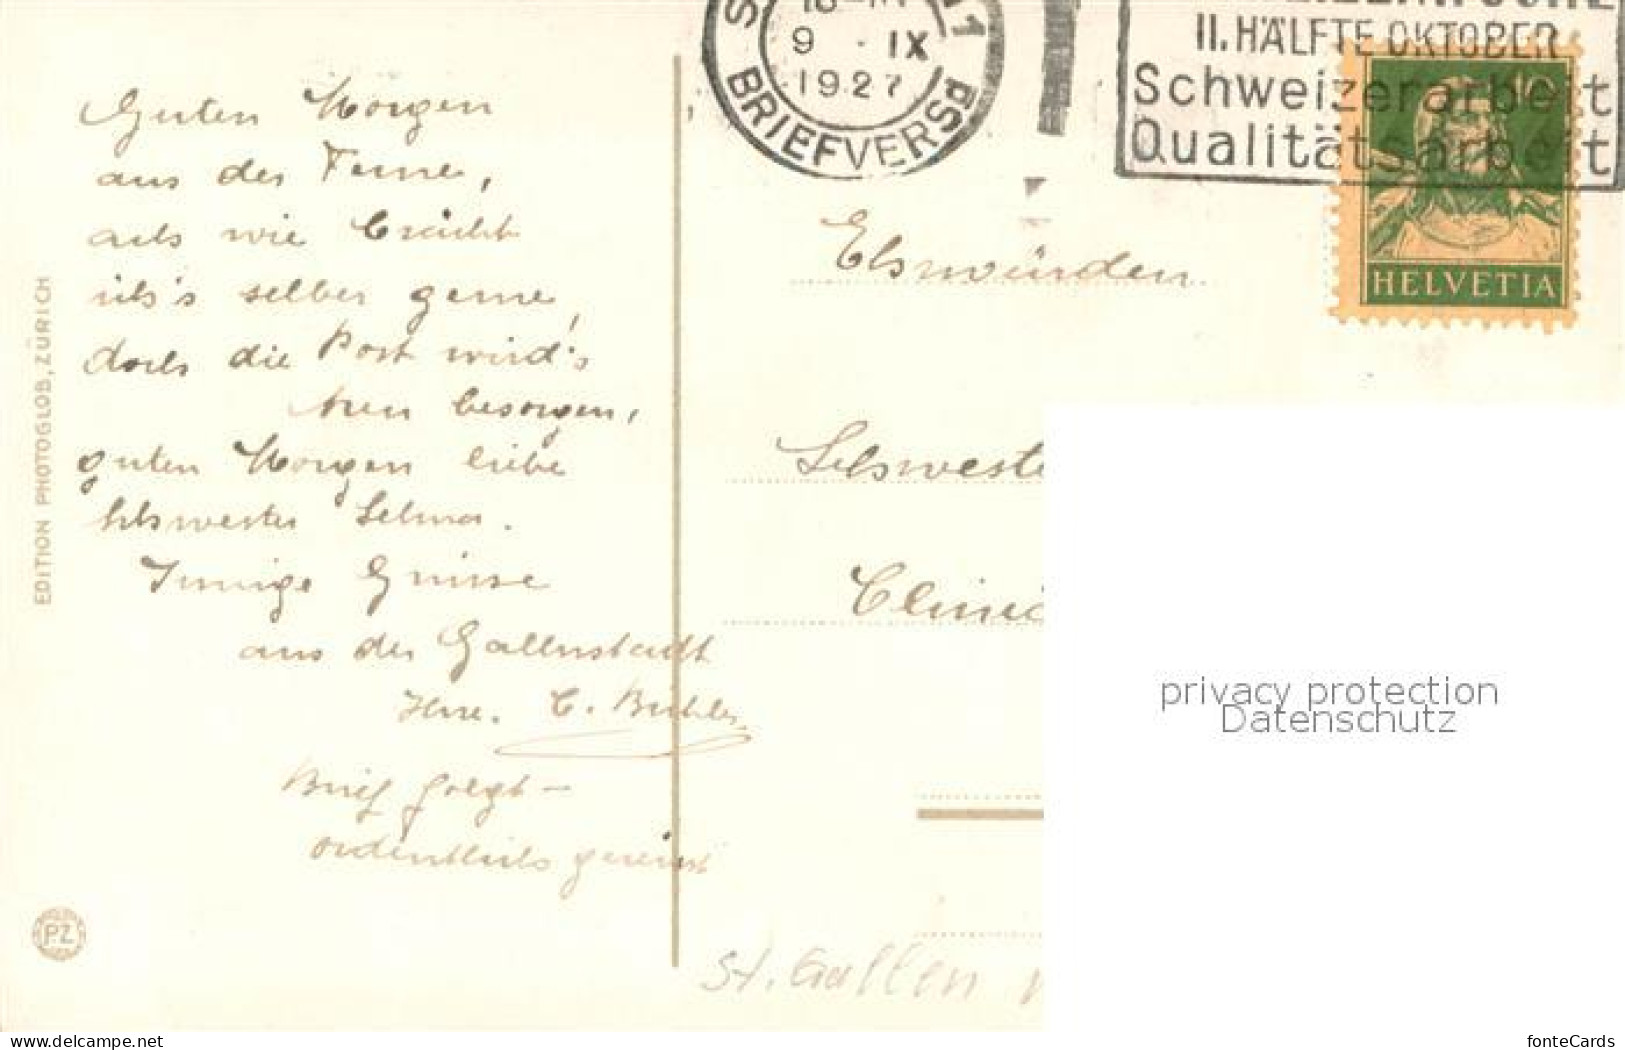 Guten Morgen
aus der Ferne,
ach wie brächt
ich's selber gerne,
doch die Post wird's
treu besorgen,
guten Morgen liebe
Schwester Selma.
Innige Grüsse
aus der Gallenstadt
Ihre. C. Bühler
Brief folgt –
ordentlich gereist
EDITION PHOTOGLOB, ZÜRICH
PZ
9 · IX
1927
BRIEFVERSd
II. HÄLFTE OKTOBER
Schweizerarbeit
Qualitätsarbeit
10
HELVETIA
Schweste
Clinic
privacy protection
Datenschutz
St. Gallen
www.delcampe.net
fonteCards